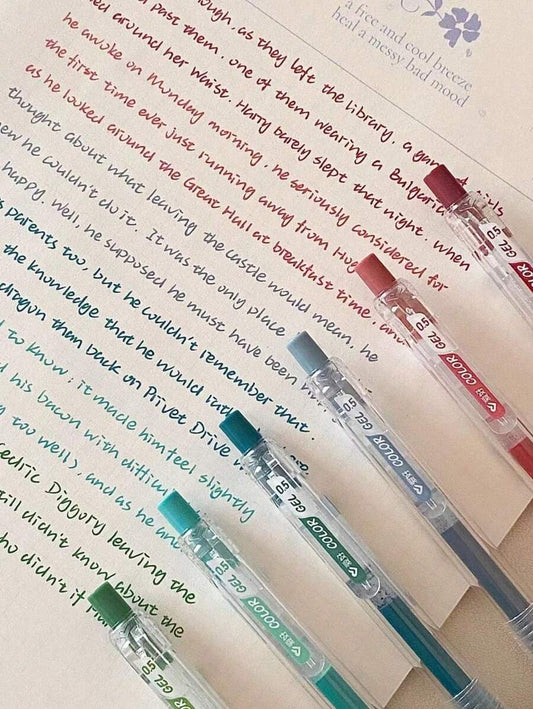 a free and cool breeze
heal a messy bad mood
ough, as they left the library, a
past them, one of them wearing a Bulgaria
ed around her waist. Harry barely slept that night. when
he awoke on Munday morning, he seriously considered for
the first time ever just running away from Hog
as he looked around the Great Hall at breakfast time, and
thought about what leaving the castle would mean, he
ew he wouldn't do it. It was the only place
happy. Well, he supposed he must have been
parents too, but he wouldn't remember that.
the knowledge that he would
dragon than back on Privet Drive
to know; it made him feel slightly
his bacon with difficul
too well), and as he and
edric Diggory leaving the
till didn't know about the
ho didn't it
GEL 0.5
COLOR
GEL 0.5
COLOR 爱好
GEL 0.5
COLOR 爱好
GEL 0.5
COLOR 爱好
GEL 0.5
COLOR 爱好
GEL 0.5